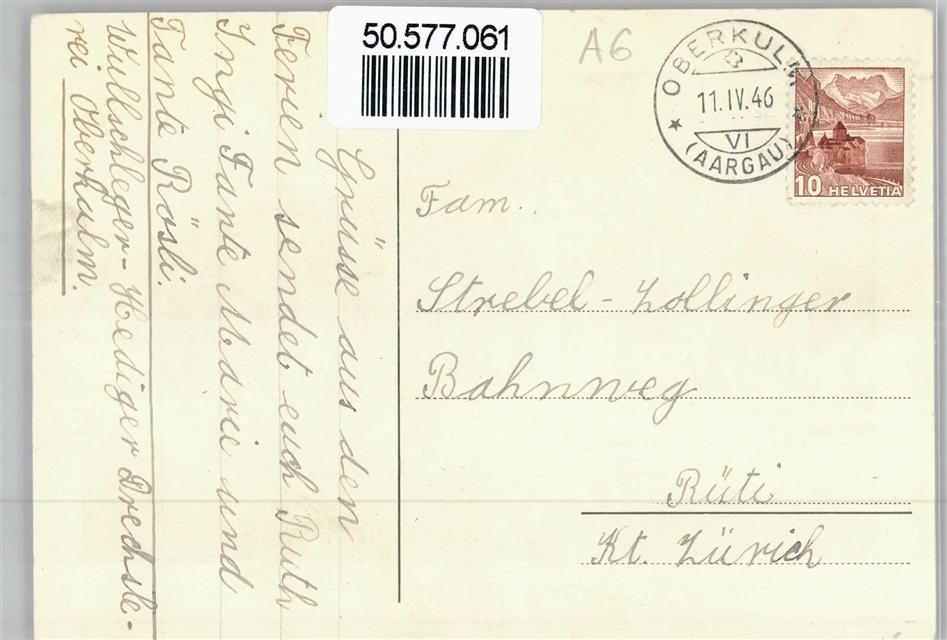 50.577.061
A6
OBERKULM
11.IV.46
VI
(AARGAU)
10 HELVETIA
Grüsse aus den
Ferien sendet euch Ruth
Ingi Tante Marie und
Tante Rösli.
Wullschleger-Hediger Drechsle-
rei Oberkulm.
Fam.
Strebel-Zollinger
Bahnweg
Rüti
Kt. Zürich